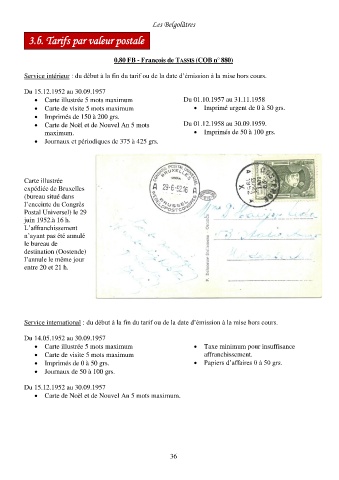 Les Belgolâtres
3.6. Tarifs par valeur postale
0.80 FB - François de TASSIS (COB n° 880)
Service intérieur : du début à la fin du tarif ou de la date d’émission à la mise hors cours.
Du 15.12.1952 au 30.09.1957
• Carte illustrée 5 mots maximum
• Carte de visite 5 mots maximum
• Imprimés de 150 à 200 grs.
• Carte de Noël et de Nouvel An 5 mots
maximum.
• Journaux et périodiques de 375 à 425 grs.
Du 01.10.1957 au 31.11.1958
• Imprimé urgent de 0 à 50 grs.
Du 01.12.1958 au 30.09.1959.
• Imprimés de 50 à 100 grs.
Carte illustrée
expédiée de Bruxelles
(bureau situé dans
l’enceinte du Congrès
Postal Universel) le 29
juin 1952,à 16 h.
L’affranchissement
n’ayant pas été annulé
le bureau de
destination (Oostende)
l’annule le même jour
entre 20 et 21 h.
29-6-52 16
BRUSSEL
Service international : du début à la fin du tarif ou de la date d’émission à la mise hors cours.
Du 14.05.1952 au 30.09.1957
• Carte illustrée 5 mots maximum
• Carte de visite 5 mots maximum
• Imprimés de 0 à 50 grs.
• Journaux de 50 à 100 grs.
• Taxe minimum pour insuffisance
affranchissement.
• Papiers d’affaires 0 à 50 grs.
Du 15.12.1952 au 30.09.1957
• Carte de Noël et de Nouvel An 5 mots maximum.
36